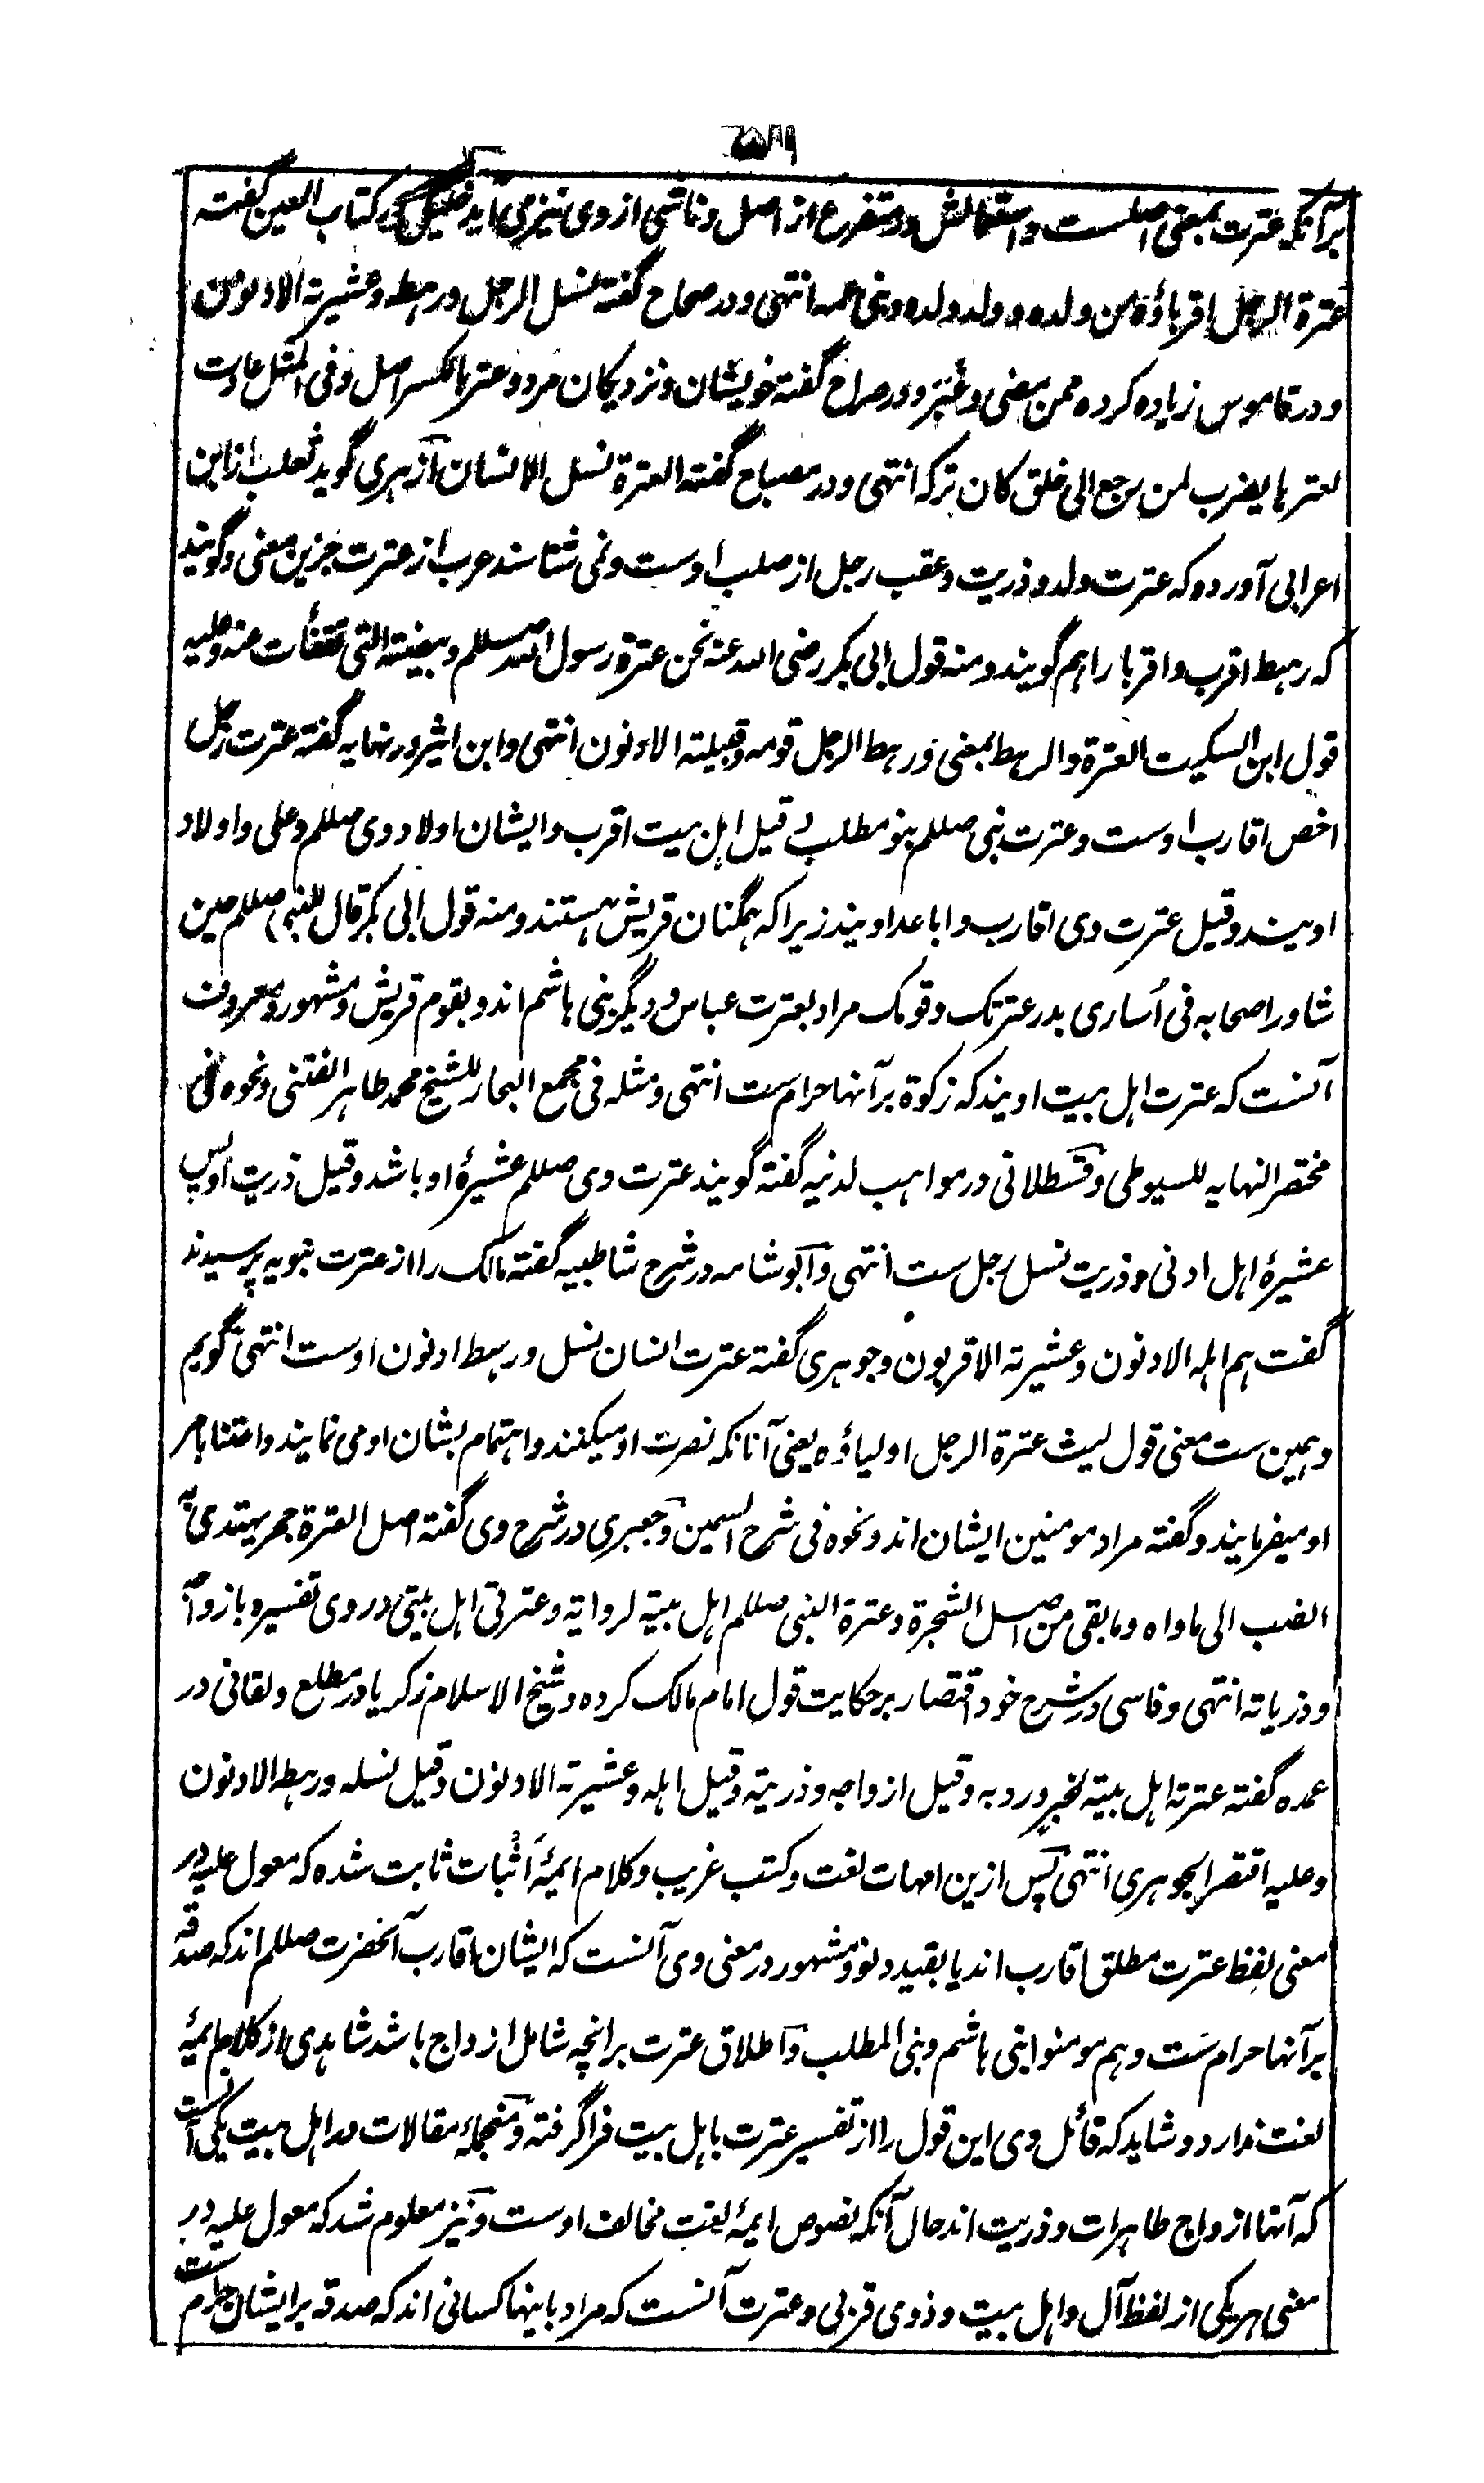 برآنکه عترت بمعنی اصلست و استعمالش در متفرع از اصل و ناشی از وی نیز می آید خلیل در کتاب العین گفته
عترة الرجل اقرباؤه من ولده و ولد ولده و بنی عمه انتهی و در صحاح گفته نسل الرجل و رهطه و عشیرته الادنون من
و در قاموس زیاده کرده ممن مضی و غبر و در صراح گفته خویشان و نزدیکان مرد و عتر بالکسر اصل و فی المثل عادت
لعترها یضرب لمن رجع الی خلق کان ترکه انتهی و در مصباح گفته العترة نسل الانسان ازهری گوید ثعلب از ابن
اعرابی آورده که عترت ولد و ذریت و عقب رجل از صلب اوست و نمی شناسند عرب از عترت جزین معنی و گویند
که رهط اقرب و اقربا را هم گویند و منه قول ابی بکر رضی الله عنه نحن عترة رسول الله صللم و بیضته التی تفقأت عنه و علیه
قول ابن السکیت العترة والرهط بمعنی و رهط الرجل قومه و قبیلته الادنون انتهی و ابن اثیر در نهایه گفته عترت رجل
اخص اقارب اوست و عترت نبی صللم بنو مطلب قیل اهل بیت اقرب و ایشان اولاد وی صللم و علی و اولاد
اویند و قیل عترت وی اقارب و اباعد اویند زیرا که همگنان قریش هستند و منه قول ابی بکر قال للنبی صللم حین
شاور اصحابه فی أساری بدر عترتک و قومک مراد بعترت عباس و دیگر بنی هاشم اند و بقوم قریش و مشهور و معروف
آنست که عترت اهل بیت اویند که زکوة بر آنها حرام ست انتهی و مثله فی مجمع البحار للشیخ محمد طاهر الفتنی و نحوه فی
مختصر النهایه للسیوطی و قسطلانی در مواهب لدنیه گفته گویند عترت وی صللم عشیرهٔ او باشد و قیل ذریت او پس
عشیرهٔ اهل ادنی و ذریت نسل رجل ست انتهی و ابو شامه در شرح شاطبیه گفته مالک را از عترت نبویه پرسیدند
گفت هم اهله الادنون و عشیرته الاقربون و جوهری گفته عترت انسان نسل و رهط ادنون اوست انتهی گویم
و همین ست معنی قول لیث عترة الرجل اولیاؤه یعنی آنانکه نصرت او میکنند و اهتمام بشان او می نمایند و اعتنا بامر
او میفرمایند و گفته مراد مومنین ایشان اند و نحوه فی شرح السمین و جعبری در شرح وی گفته اصل العترة حجر یهتدی به
الضب الی ماواه و ما بقی من اصل الشجرة و عترة النبی صللم اهل بیته لروایته و عترتی اهل بیتی در وی تفسیر و بازواجه
و ذریاته انتهی و فاسی در شرح خود اقتصار بر حکایت قول امام مالک کرده و شیخ الاسلام زکریا در مطلع و لقانی در
عمده گفته عترته اهل بیته لخبر ورد به و قیل ازواجه و ذریته و قیل اهله و عشیرته الادنون و قیل نسله و رهطه الادنون
و علیه اقتصر الجوهری انتهی پس ازین امهات لغت و کتب غریب و کلام ایمهٔ أثبات ثابت شده که معول علیه در
معنی لفظ عترت مطلق اقارب اند یا بقید دنو و مشهور در معنی وی آنست که ایشان اقارب آنحضرت صللم اند که صدقه
بر آنها حرام ست و هم مومنوا بنی هاشم و بنی المطلب و اطلاق عترت بر انچه شامل ازواج باشد شاهدی از کلام ایمهٔ
لغت ندارد و شاید که قائل وی این قول را از تفسیر عترت باهل بیت فرا گرفته و منجملهٔ مقالات در اهل بیت یکی آنست
که آنها ازواج طاهرات و ذریت اند حال آنکه نصوص ایمهٔ لغت مخالف اوست و نیز معلوم شد که معول علیه در
معنی هر یکی از لفظ آل و اهل بیت و ذوی قربی و عترت آنست که مراد باینها کسانی اند که صدقه بر ایشان حرام ست